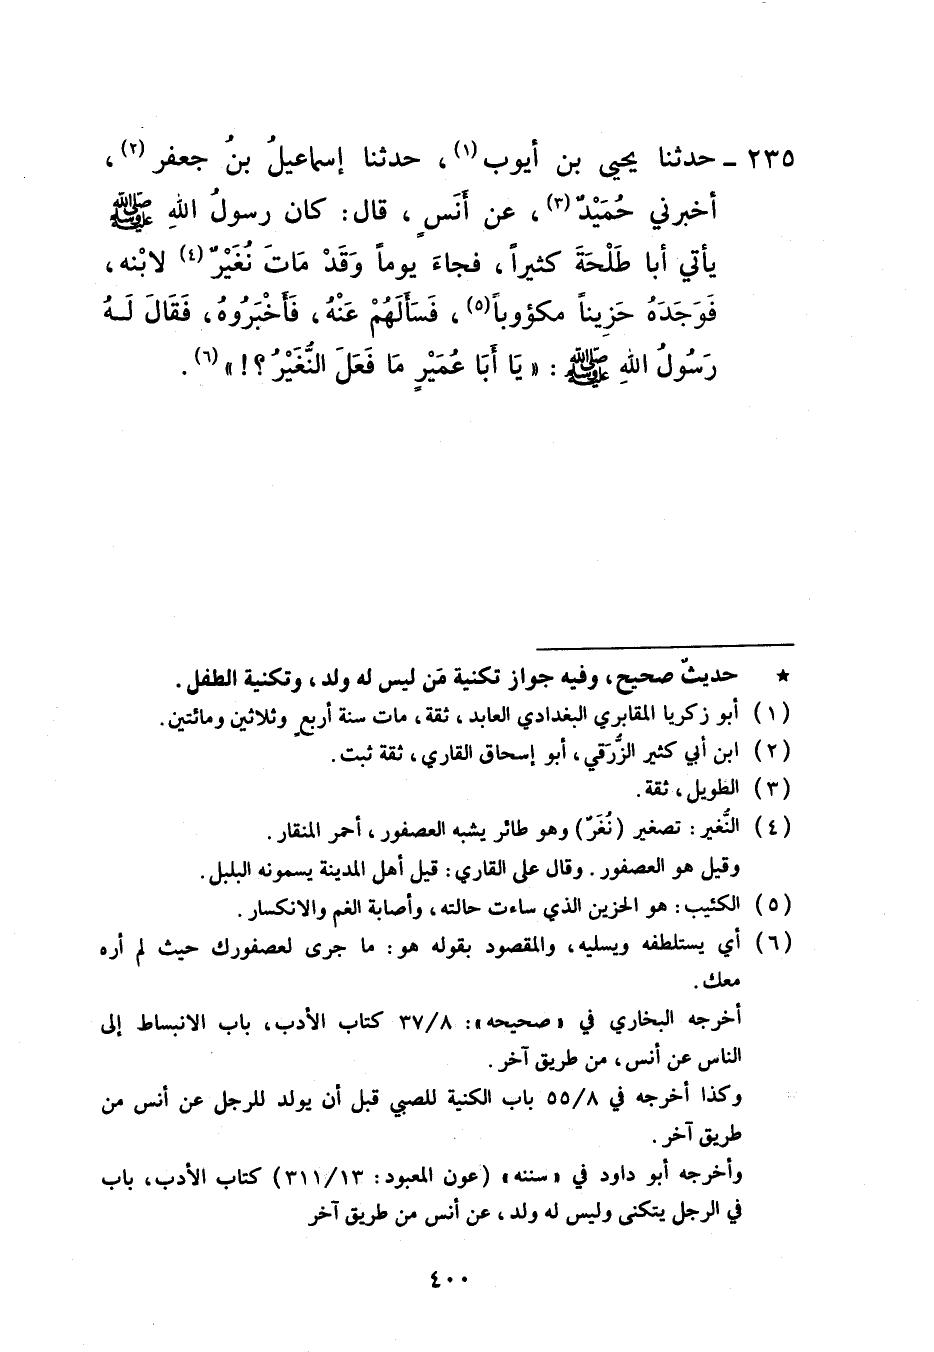 ٢٣٥ ـ حدثنا يحيى بن أيوب(١)، حدثنا إسماعيلُ بنُ جعفر(٢)،
أخبرني حُمَيْدٌ(٣)، عن أَنَسٍ، قال: كان رسولُ اللهِ ﷺ
يأتي أبا طَلْحَةَ كثيراً، فجاءَ يوماً وَقَدْ مَاتَ نُغَيْرٌ(٤) لابْنه،
فَوَجَدَهُ حَزِيناً مكؤوباً(٥)، فَسَأَلَهُمْ عَنْهُ، فَأَخْبَرُوهُ، فَقَالَ لَـهُ
رَسُولُ اللهِ ﷺ: «يَا أَبَا عُمَيْرٍ مَا فَعَلَ النُّغَيْرُ؟!»(٦).
★ حديثٌ صحيح، وفيه جواز تكنية مَن ليس له ولد، وتكنية الطفل.
(١) أبو زكريا المقابري البغدادي العابد، ثقة، مات سنة أربعٍ وثلاثين ومائتين.
(٢) ابن أبي كثير الزُّرَقي، أبو إسحاق القاري، ثقة ثبت.
(٣) الطويل، ثقة.
(٤) النُّغير: تصغير (نُغَرٌ) وهو طائر يشبه العصفور، أحمر المنقار.
وقيل هو العصفور. وقال علي القاري: قيل أهل المدينة يسمونه البلبل.
(٥) الكئيب: هو الحزين الذي ساءت حالته، وأصابة الغم والانكسار.
(٦) أي يستلطفه ويسليه، والمقصود بقوله هو: ما جرى لعصفورك حيث لم أره
معك.
أخرجه البخاري في «صحيحه»: ٣٧/٨ كتاب الأدب، باب الانبساط إلى
الناس عن أنس، من طريق آخر.
وكذا أخرجه في ٥٥/٨ باب الكنية للصبي قبل أن يولد للرجل عن أنس من
طريق آخر.
وأخرجه أبو داود في «سننه» (عون المعبود: ٣١١/١٣) كتاب الأدب، باب
في الرجل يتكنى وليس له ولد، عن أنس من طريق آخر
٤٠٠